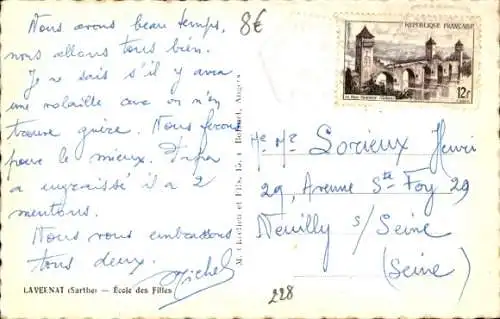 Nous avons beau temps,
nous allons tous bien.
Je ne sais s'il y aura
une volaille car on n'en
trouve guère. Nous ferons
pour le mieux. Papa
a engraissé il a 2
mentons.
Nous vous embrassons
tous deux.
Michel
LAVERNAT (Sarthe) — École des Filles
8€
M. Chrétien et Fils, Angers
REPUBLIQUE FRANÇAISE
12F
Sorieux Henri
29, Avenue Ste Foy 29
Neuilly s/ Seine
(Seine)
228